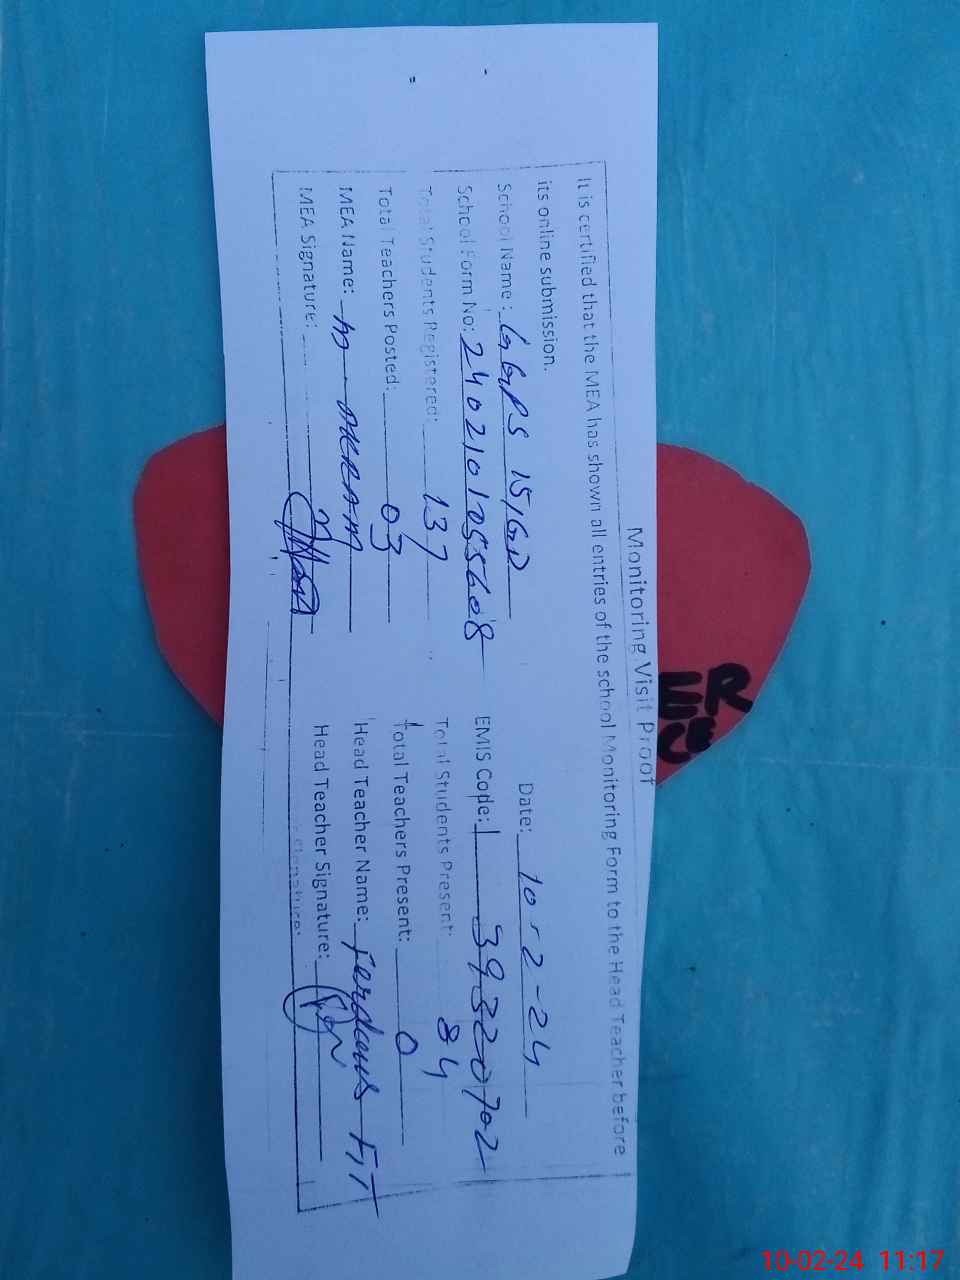 Monitoring Visit Proof
It is certified that the MEA has shown all entries of the school Monitoring Form to the Head Teacher before
its online submission.
School Name: GGPS 15/GD Date: 10-2-24
School Form No: EMIS Code: 39320702
Total Students Registered: 137 Total Students Present: 84
Total Teachers Posted: 03 Total Teachers Present: 0
MEA Name: M. AKRAM Head Teacher Name: Ferdous
MEA Signature: Head Teacher Signature:
Signature:
ER
10-02-24 11:17